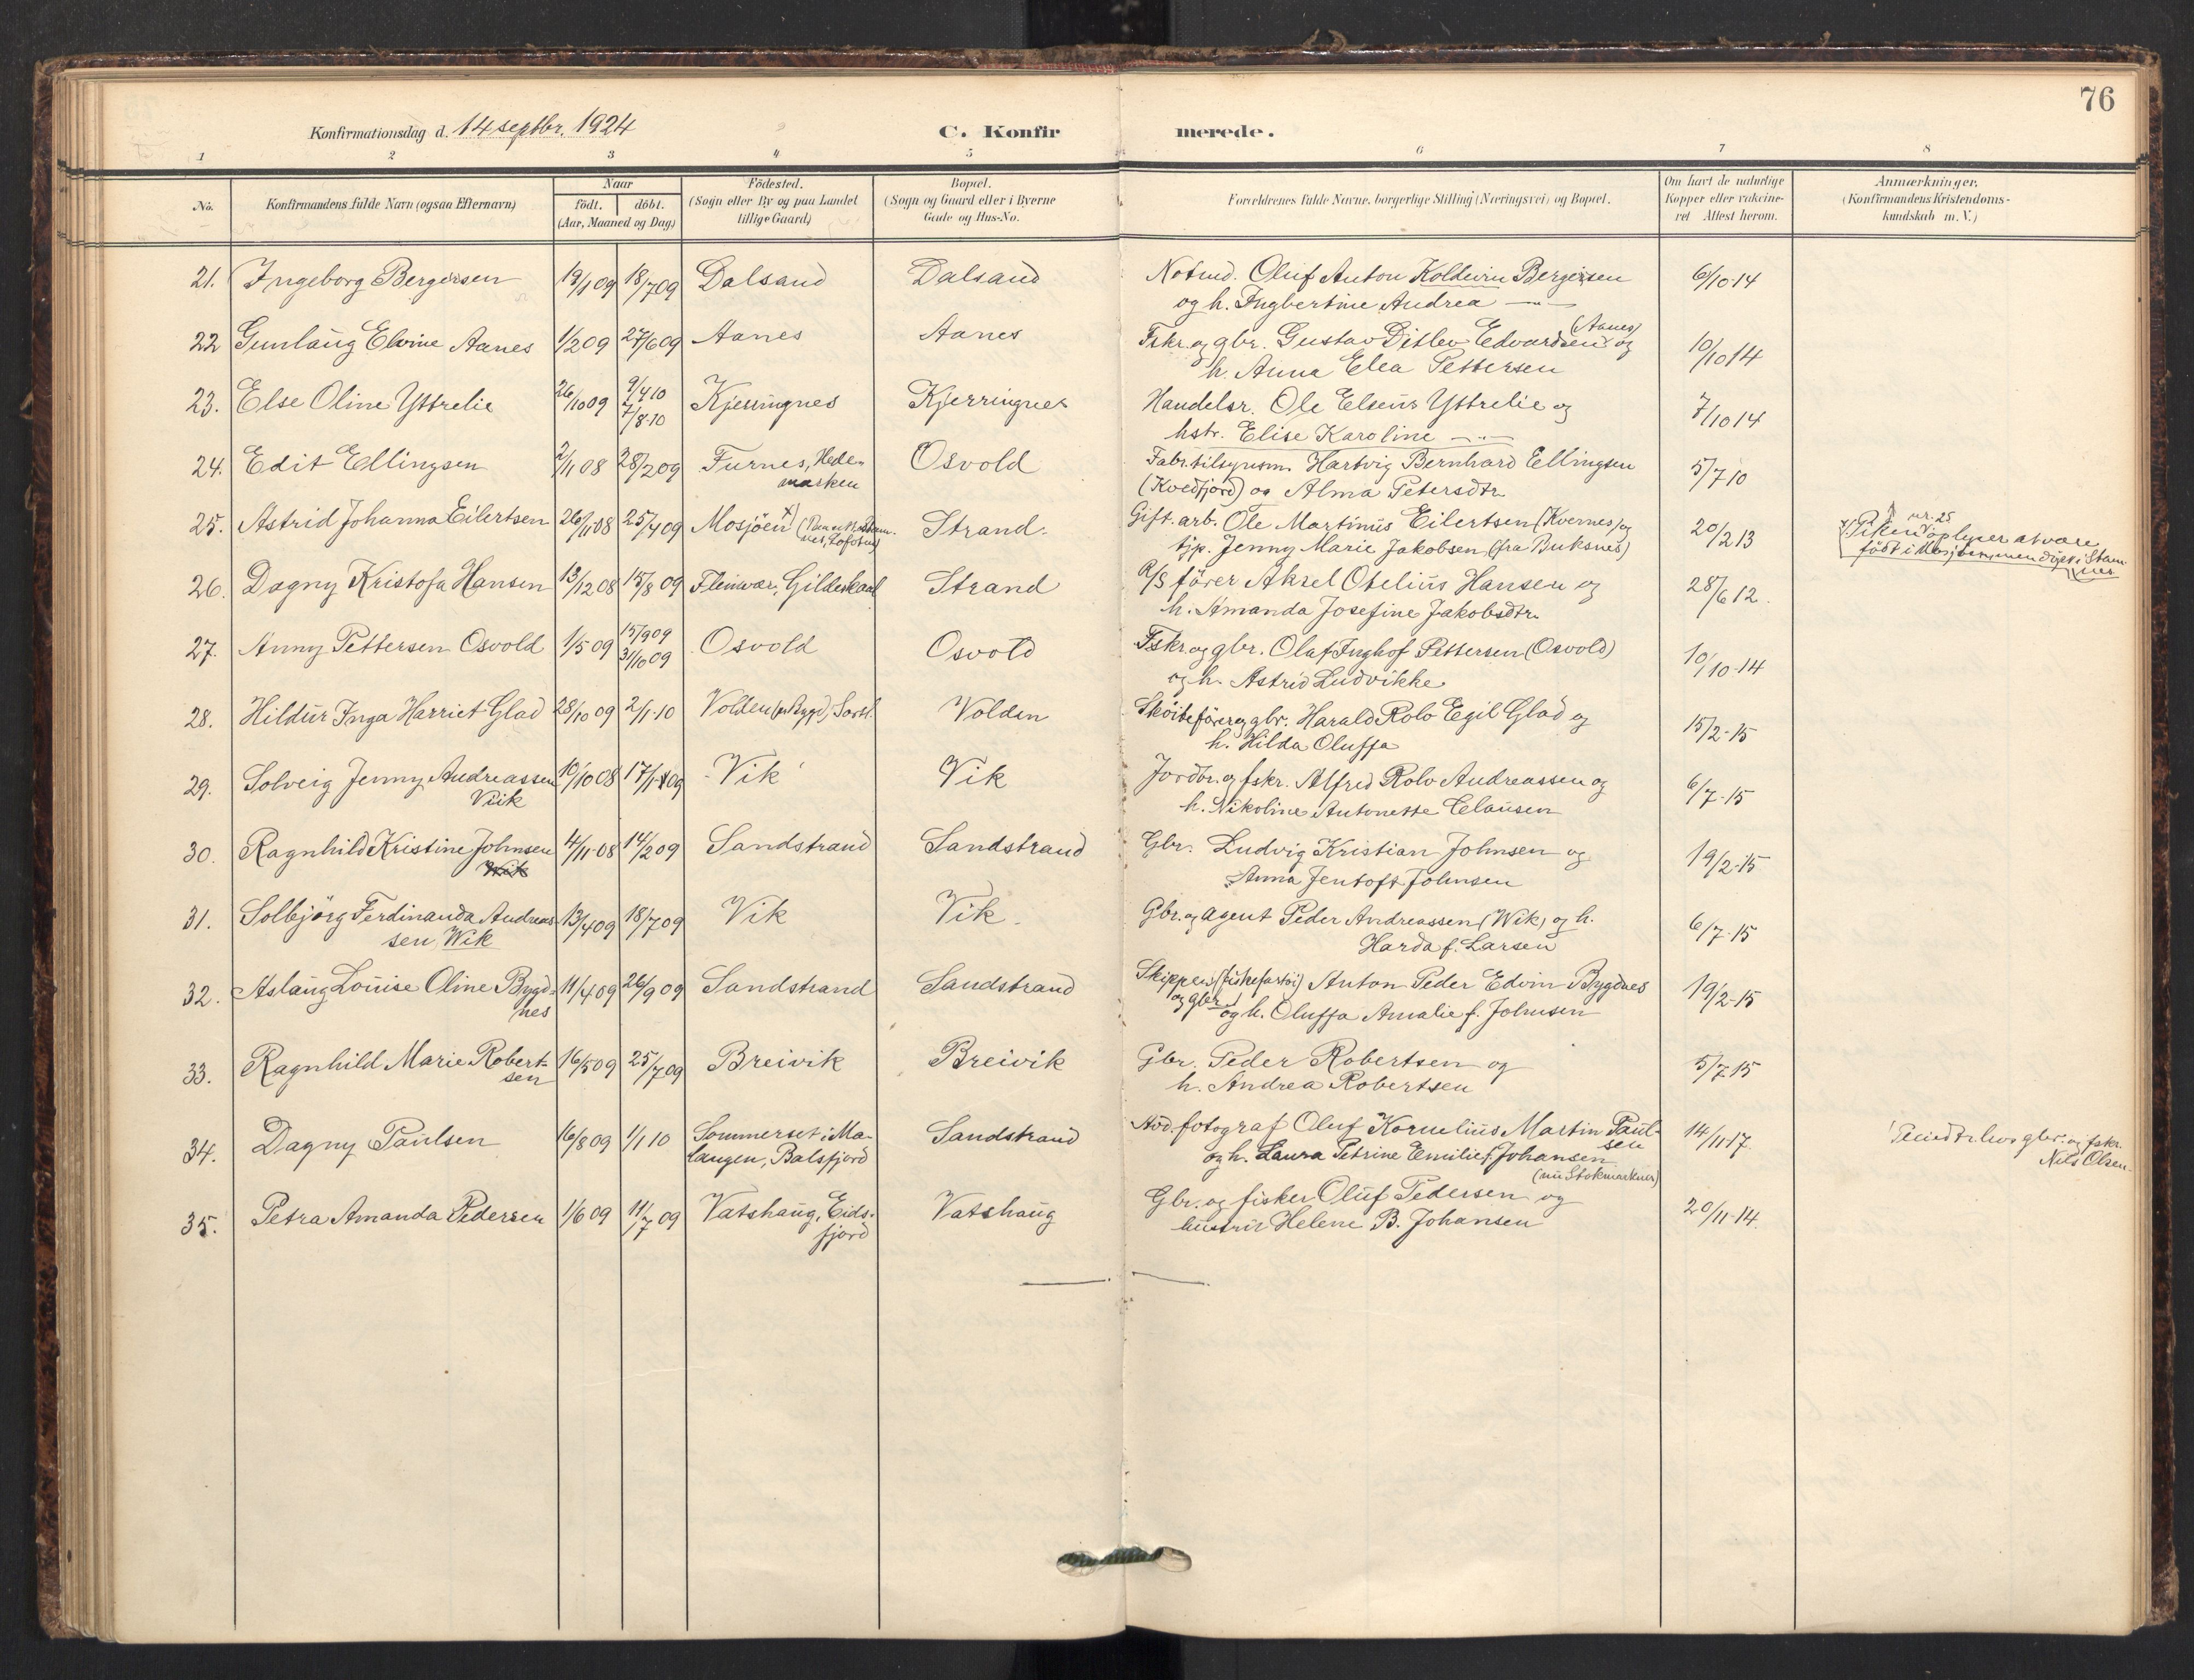 76
Konfirmationsdag d. 14 septbr. 1924
C. Konfirmerede.
1 2 3 4 5 6 7 8
No. Konfirmandens fulde Navn (ogsaa Efternavn) Naar födt. döbt. (Aar, Maaned og Dag) Födested. (Sogn eller By og paa Landet tillige Gaard) Bopæl. (Sogn og Gaard eller i Byerne Gade og Hus-No. Forældrenes fulde Navne, borgerlige Stilling (Næringsvei) og Bopæl. Om havt de naturlige Kopper eller vakcineret Attest herom. Anmærkninger. (Konfirmandens Kristendomskundskab m. V.)
21. Ingeborg Bergersen 19/1 09 18/7 09 Dalsand Dalsand Notmd. Oluf Anton Koldevin Bergersen 6/10 14
og h. Ingbertine Andrea —"—
22 Gunlaug Elvine Aanes 1/2 09 27/6 09 Aanes Aanes Fskr. og gbr. Gustav Ditlev Edvardsen (Aanes) og 10/10 14
h. Anna Elea Pettersen
23. Else Oline Yttrelie 26/10 09 9/4 10 Kjerringnes Kjerringnes Handelsr. Ole Elseus Yttrelie og 7/10 14
7/8-10 hstr. Elise Karoline —"—
24. Edit Ellingsen 2/11 08 28/2 09 Furnes, Hede- Osvold Fabr.tilsynsm. Hartvig Bernhard Ellingsen 5/7 10
marken (Kvedfjord) og Alma Petersdtr.
25. Astrid Johanna Eilertsen 26/11 08 25/4 09 Mosjöen x) Strand. Gift. arb. Ole Martinus Eilertsen (Kvernes) og 20/2 13 nr. 25
nes, Lofoten) tjp. Jenny Marie Jakobsen (fra Buksnes) x) Piken oplyser at være
födt i Mosjöen, men döpt i Stam-
nes
26. Dagny Kristofa Hansen 13/12 08 15/8 09 Fleinvær, Gildeskaal Strand D/S förer Aksel Obelius Hansen og 28/6 12.
h. Amanda Josefine Jakobsdtr.
27. Anny Pettersen Osvold 1/5 09 15/9 09 Osvold Osvold Fskr. og gbr. Olaf Inghof Pettersen (Osvold) 10/10-14
31/10 09 og h. Astrid Ludvikke
28. Hildur Inga Harriet Glad 28/10 09 2/1-10 Volden (pr Bygd), Sortl. Volden Sköiteförer og gbr. Harald Rolo Egil Glad og 15/2-15
h. Hilda Oluffa
29. Solveig Jenny Andreassen 10/10 08 17/1 09 Vik Vik Jordbr. og fskr. Alfred Rolo Andreassen og 6/7-15
Viik h. Nikoline Antonette Clausen
30. Ragnhild Kristine Johnsen 4/11-08 14/2 09 Sandstrand Sandstrand Gbr. Ludvig Kristian Johnsen og 19/2-15
Wik Anna Jentoft Johnsen
31. Solbjörg Ferdinanda Andreas- 13/4 09 18/7 09 Vik Vik Gbr. og agent Peder Andreassen (Wik) og h. 6/7-15
sen Wik Harda f. Larsen
32. Aslaug Louise Oline Bygd- 11/4 09 26/9 09 Sandstrand Sandstrand Skipper (fiskefartöi) Anton Peder Edvin Bygdnes 19/2-15
nes og gbr. og h. Oluffa Amalie f. Johnsen
33. Ragnhild Marie Robert- 16/5 09 25/7 09 Breivik Breivik Gbr. Peder Robertsen og 5/7 15
sen h. Andrea Robertsen
34. Dagny Paulsen 16/8 09 1/1 10 Sommerset i Ma- Sandstrand Avd. fotograf Oluf Kornelius Martin Paul- 14/11 17. Pleiedtr. hos gbr. og fskr.
langen, Balsfjord sen og h. Laura Petrine Emilie f. Johansen Nils Olsen.
(nu Stokmarknes)
35. Petra Amanda Pedersen 1/6 09 11/7 09 Vatshaug, Eids- Vatshaug Gbr. og fisker Oluf Pedersen og 20/11-14.
fjord hustru Helene B. Johansen